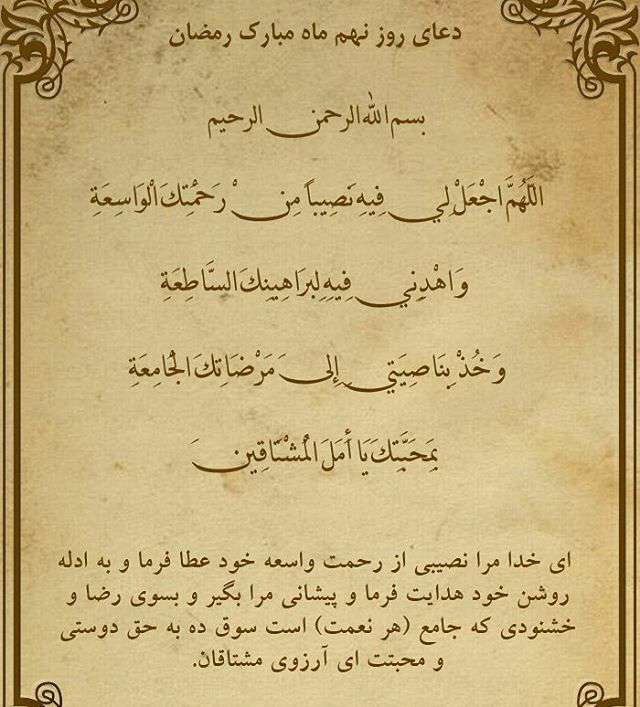 دعای روز نهم ماه مبارک رمضان
بسم الله الرحمن الرحیم
اللَّهُمَّ اجْعَلْ لِي فِيهِ نَصِيباً مِنْ رَحْمَتِكَ الْوَاسِعَةِ
وَ اهْدِنِي فِيهِ لِبَرَاهِينِكَ السَّاطِعَةِ
وَ خُذْ بِنَاصِيَتِي إِلَى مَرْضَاتِكَ الْجَامِعَةِ
بِمَحَبَّتِكَ يَا أَمَلَ الْمُشْتَاقِينَ
ای خدا مرا نصیبی از رحمت واسعه خود عطا فرما و به ادله
روشن خود هدایت فرما و پیشانی مرا بگیر و بسوی رضا و
خشنودی که جامع (هر نعمت) است سوق ده به حق دوستی
و محبتت ای آرزوی مشتاقان.